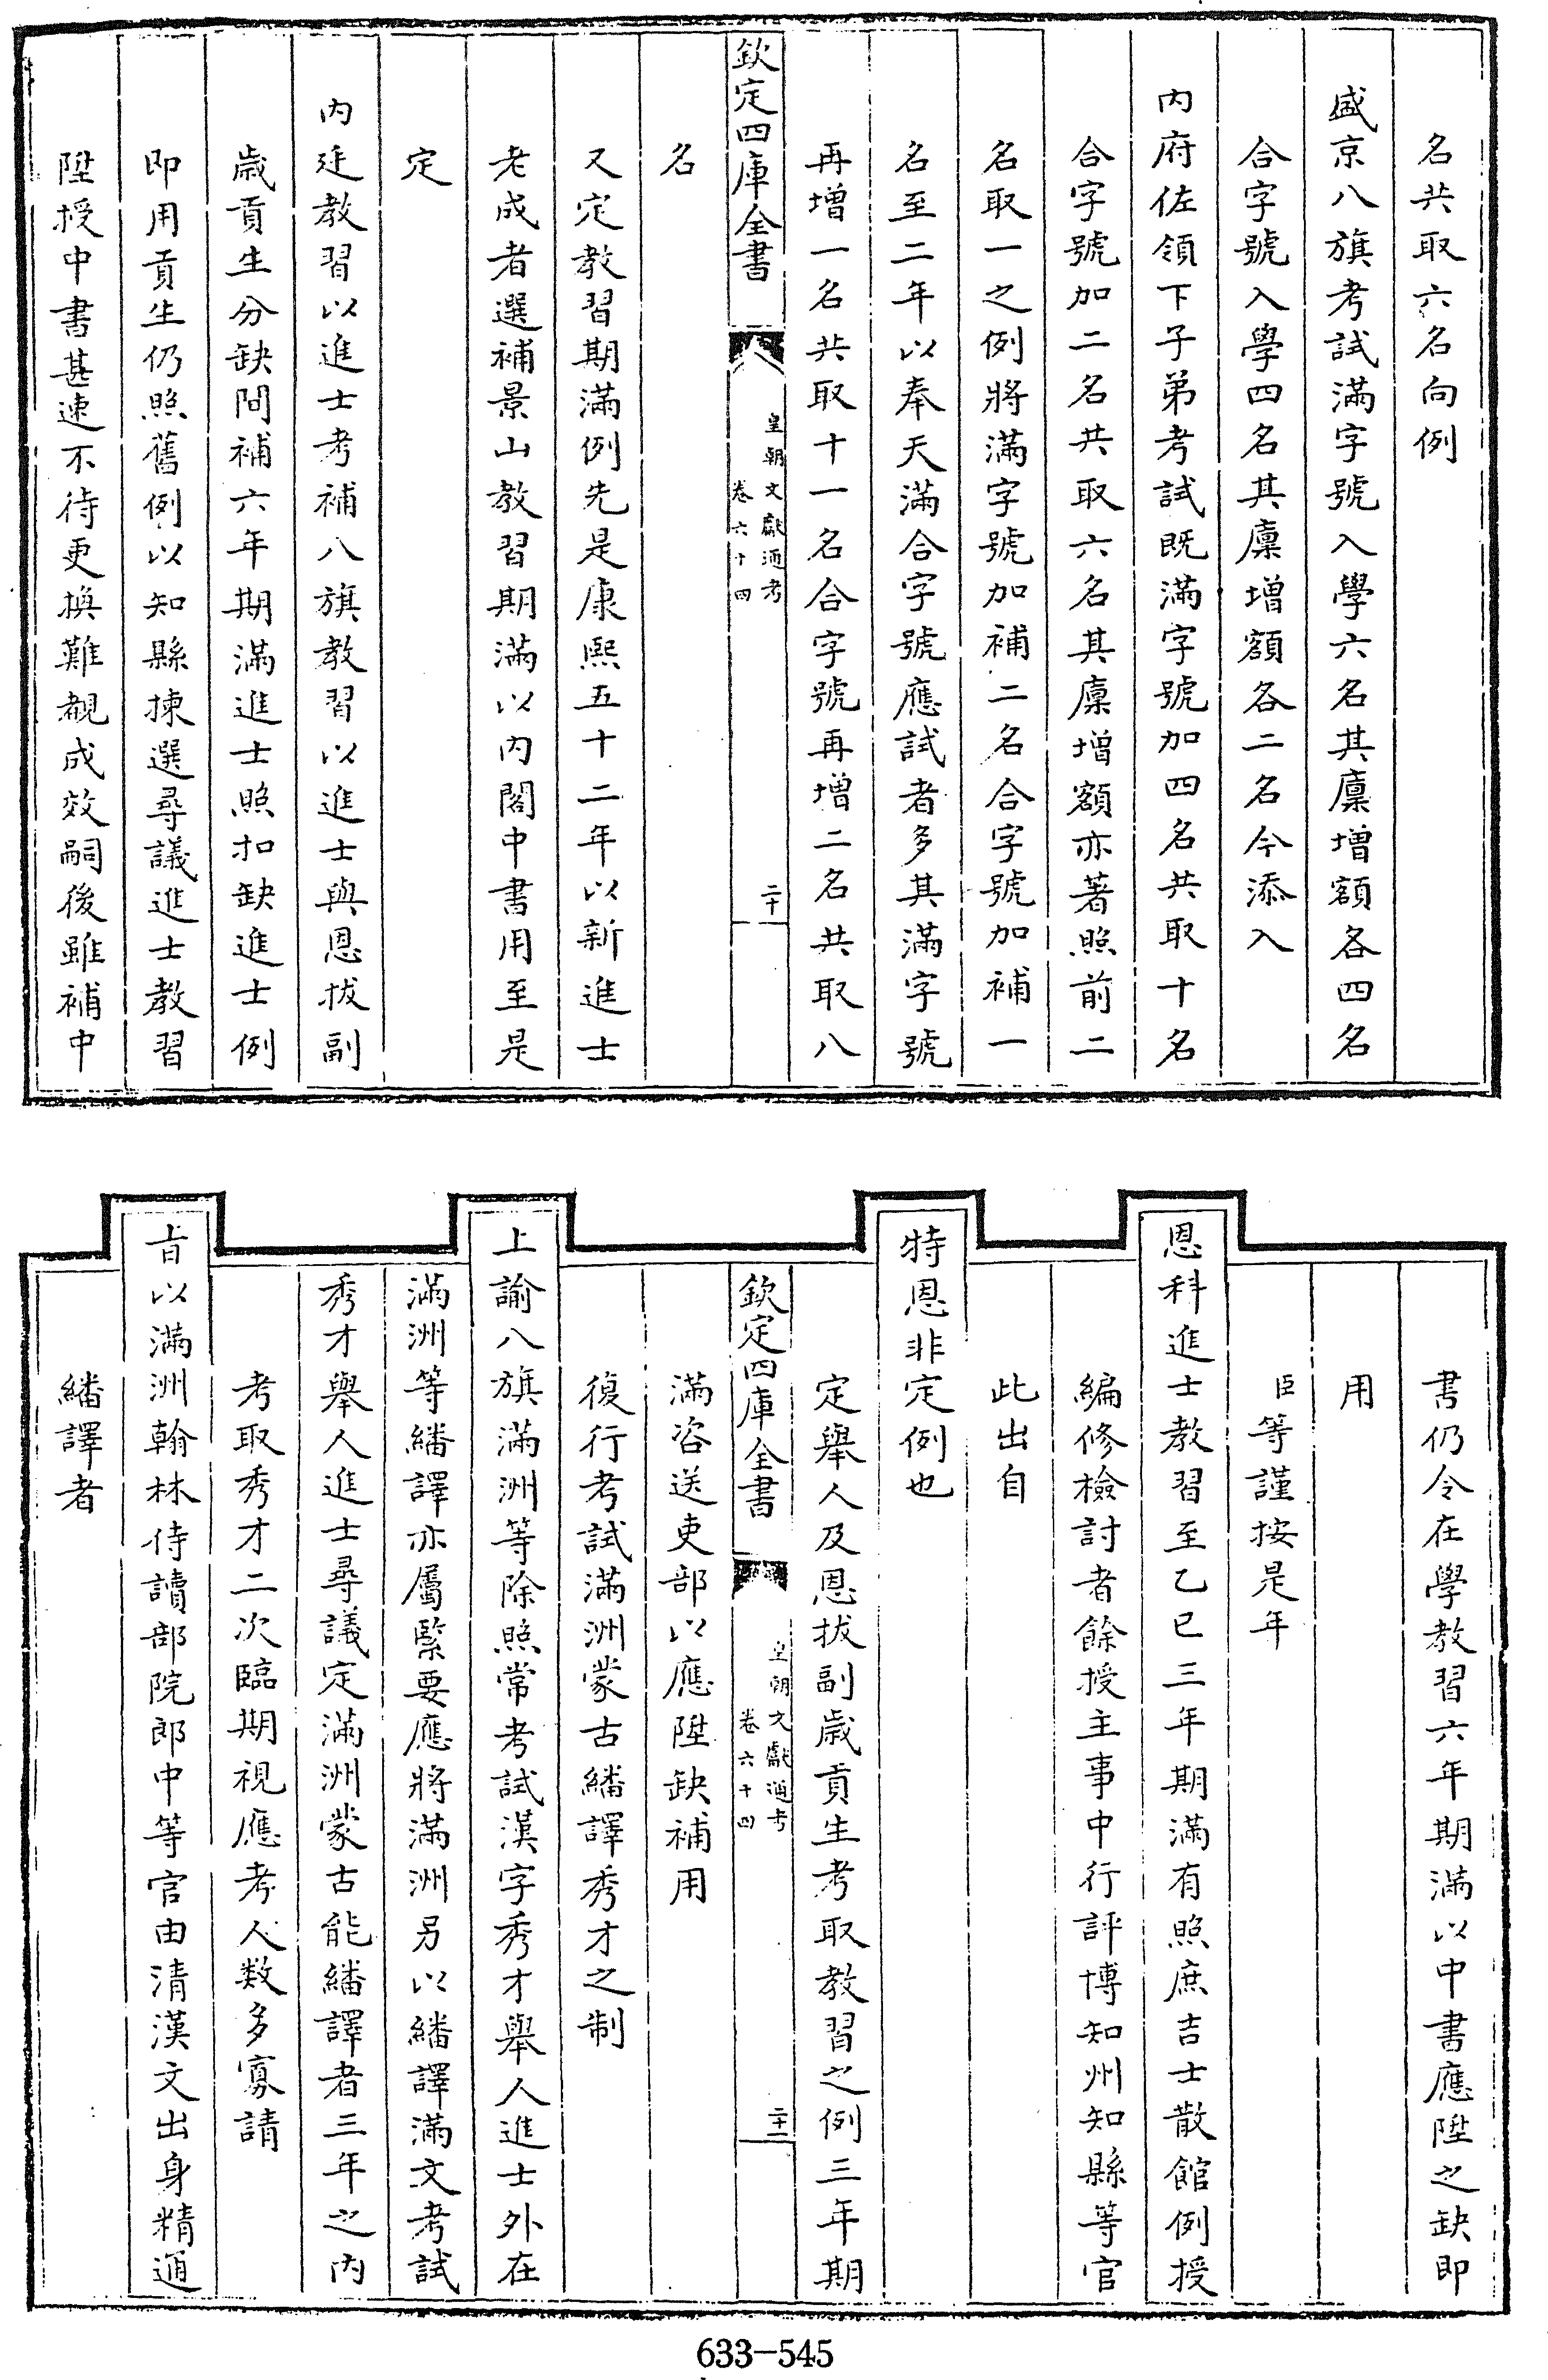 名共取六名向例
盛京八旗考試滿字號入學六名其廩增額各四名
合字號入學四名其廩增額各二名今添入
內府佐領下子弟考試既滿字號加四名共取十名
合字號加二名共取六名其廩增額亦著照前二
名取一之例將滿字號加補二名合字號加補一
名至二年以奉天滿合字號應試者多其滿字號
再增一名共取十一名合字號再增二名共取八
欽定四庫全書
皇朝文獻通考
卷六十四
二十
名
又定教習期滿例先是康熙五十二年以新進士
老成者選補景山教習期滿以內閣中書用至是
定
內廷教習以進士考補八旗教習以進士與恩拔副
歲貢生分缺間補六年期滿進士照扣缺進士例
即用貢生仍照舊例以知縣揀選尋議進士教習
陞授中書甚速不待更換難覩成效嗣後雖補中
書仍令在學教習六年期滿以中書應陞之缺即
用
臣等謹按是年
恩科進士教習至乙巳三年期滿有照庶吉士散館例授
編修檢討者餘授主事中行評博知州知縣等官
此出自
特恩非定例也
定舉人及恩拔副歲貢生考取教習之例三年期
欽定四庫全書
皇朝文獻通考
卷六十四
二十一
滿咨送吏部以應陞缺補用
復行考試滿洲蒙古繙譯秀才之制
上諭八旗滿洲等除照常考試漢字秀才舉人進士外在
滿洲等繙譯亦屬緊要應將滿洲另以繙譯滿文考試
秀才舉人進士尋議定滿洲蒙古能繙譯者三年之內
考取秀才二次臨期視應考人數多寡請
旨以滿洲翰林侍讀部院郎中等官由清漢文出身精通
繙譯者
633-545